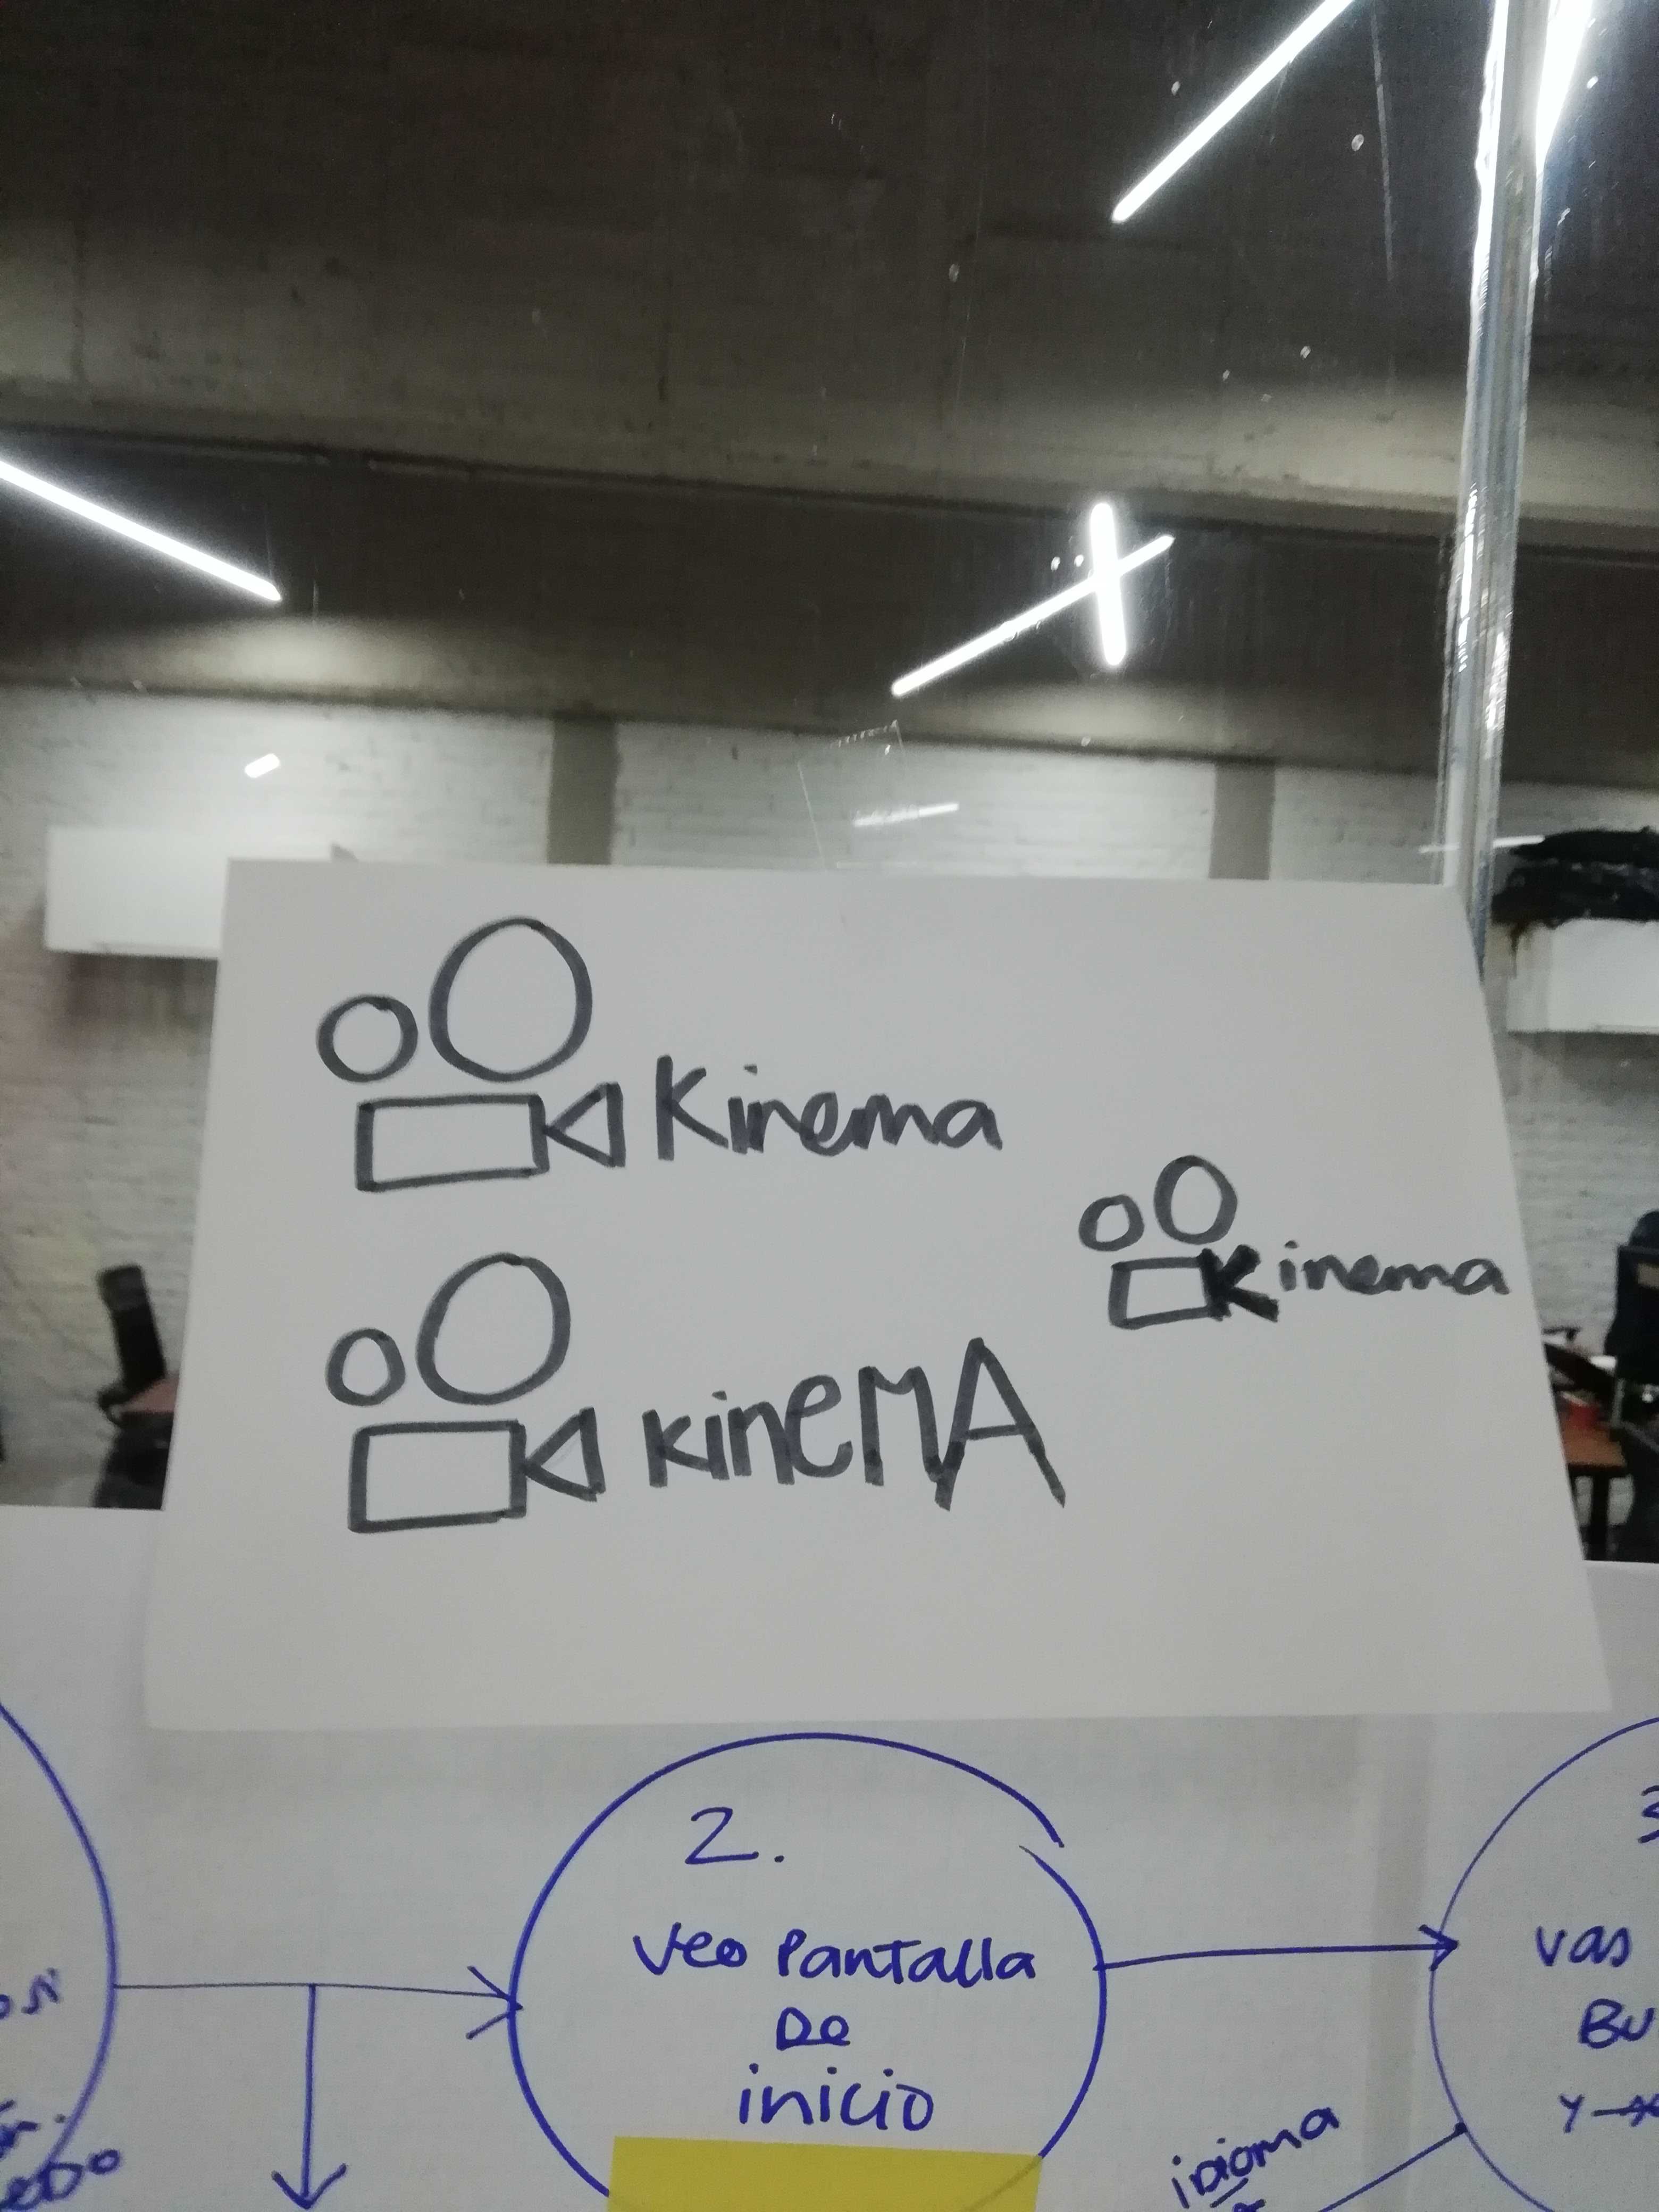 Kinema
Kinema
KineMA
2.
Veo Pantalla
De
inicio
3
vas
idioma